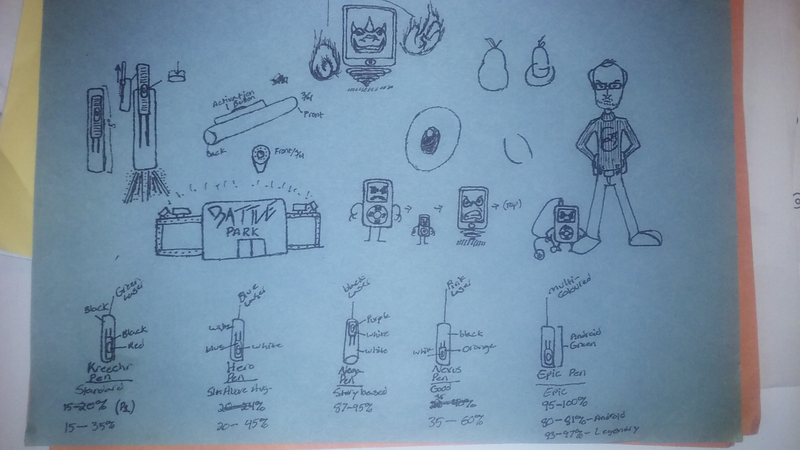 Activation
Button
3/4
Front
Back
Front/3/4
BATTLE
PARK
(rap)
Green
Laser
Black
Black
Red
Kreechr
Pen
Standard
15-20% (Pa)
15-35%
Blue
Laser
White
Hero
Pen
20-45%
Black
Laser
Purple
White
White
Pen
Story based
87-95%
Pink
Laser
black
Orange
Nexus
Pen
Good
35-60%
Multi-
Coloured
Android
Green
Epic Pen
Epic
95-100%
80-81%-Android
93-97%-Legendary